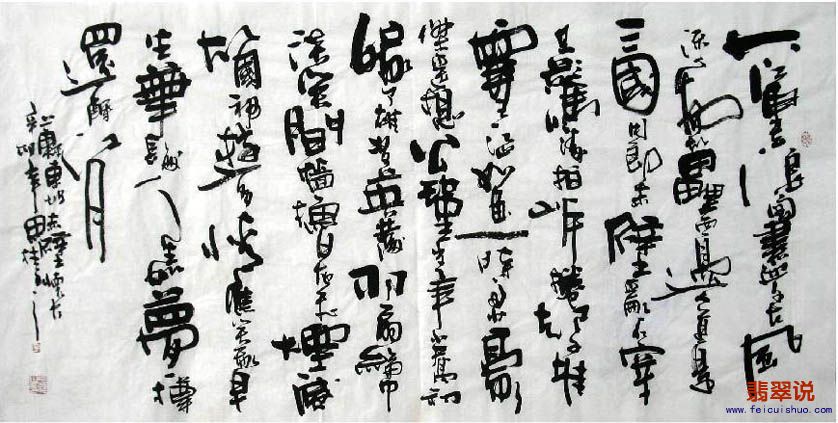 大江東去浪淘盡千古風
流人物故壘西邊人道是
三國周郎赤壁亂石穿
空驚濤拍岸捲起千堆
雪江山如畫一時多少豪
傑遙想公瑾當年小喬初
嫁了雄姿英發羽扇綸巾
談笑間檣櫓灰飛煙滅
故國神遊多情應笑我早
生華髮人如夢樽
還酹江月
東坡赤壁懷古
辛卯年
翡翠说
www.feicuishuo.com